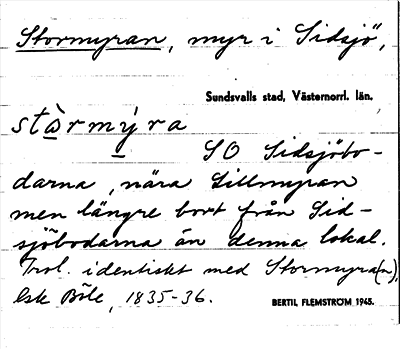 Stormyran, myr i Sidsjö,
Sundsvalls stad, Västernorrl. län.
stə̀rmýra
SO Sidsjöbo-
darna, nära Lillmyran
men längre bort från Sid-
sjöbodarna än denna lokal.
Trol. identiskt med Stormyra(n),
lsk Böle, 1835-36.
BERTIL FLEMSTRÖM 1945.